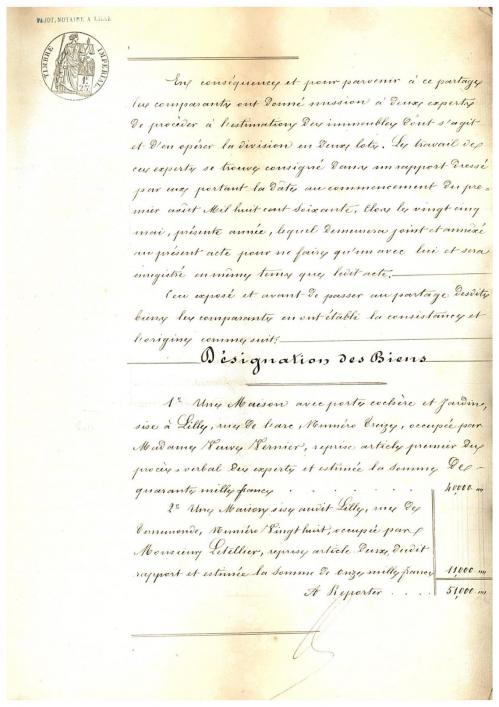 PAJOT, NOTAIRE A LILLE
TIMBRE IMPÉRIAL
1F
En conséquence et pour parvenir à ce partage
les comparants ont donné mission à deux experts
de procéder à l'estimation des immeubles dont s'agit
et d'en opérer la division en deux lots. Le travail de
ces experts se trouve consigné dans un rapport dressé
par eux portant la date au commencement du pre-
mier août Mil huit cent soixante, Clos le vingt cinq
mai, présente année, lequel demeurera joint et annexé
au présent acte pour ne faire qu'un avec lui et sera
enregistré en même tems que ledit acte.
Ceci exposé et avant de passer au partage desdits
biens les comparants en ont établi la consistance et
l'origine comme suit:
Désignation des Biens
1° Une Maison avec porte cochère et Jardin,
sise à Lille, rue de l'arc, Numéro Treize, occupée par
Madame Veuve Vernier, reprise article premier du
procès-verbal des experts et estimée la somme De
quarante mille francs . . . . . . . 40,000 "
2° Une Maison sise audit Lille, rue de
Numéro Vingt huit, occupée par
Monsieur Letellier, reprise article Deux dudit
rapport et estimée la somme de onze mille francs 11,000 "
A Reporter . . . . 51,000 "